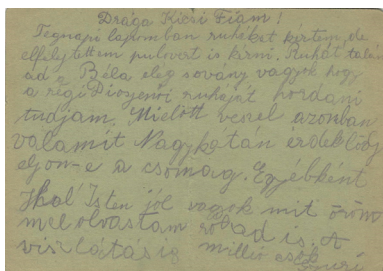 Drága Kicsi Fiam!
Tegnapi lapomban ruhéket kértem, de
elfelejtettem pulovert is kérni. Ruhát talán
ád z Béla elég sovány vagyok hogy
a régi Diósjenői ruháját hordani
tudjam. Mielött veszel azonban
valamit Nagykátán érdeklődj
eljön-e a csomag. Egyébként
hál' Isten jól vagyok mit öröm
mel olvastam rólad is. A
viszlátásig millió csók